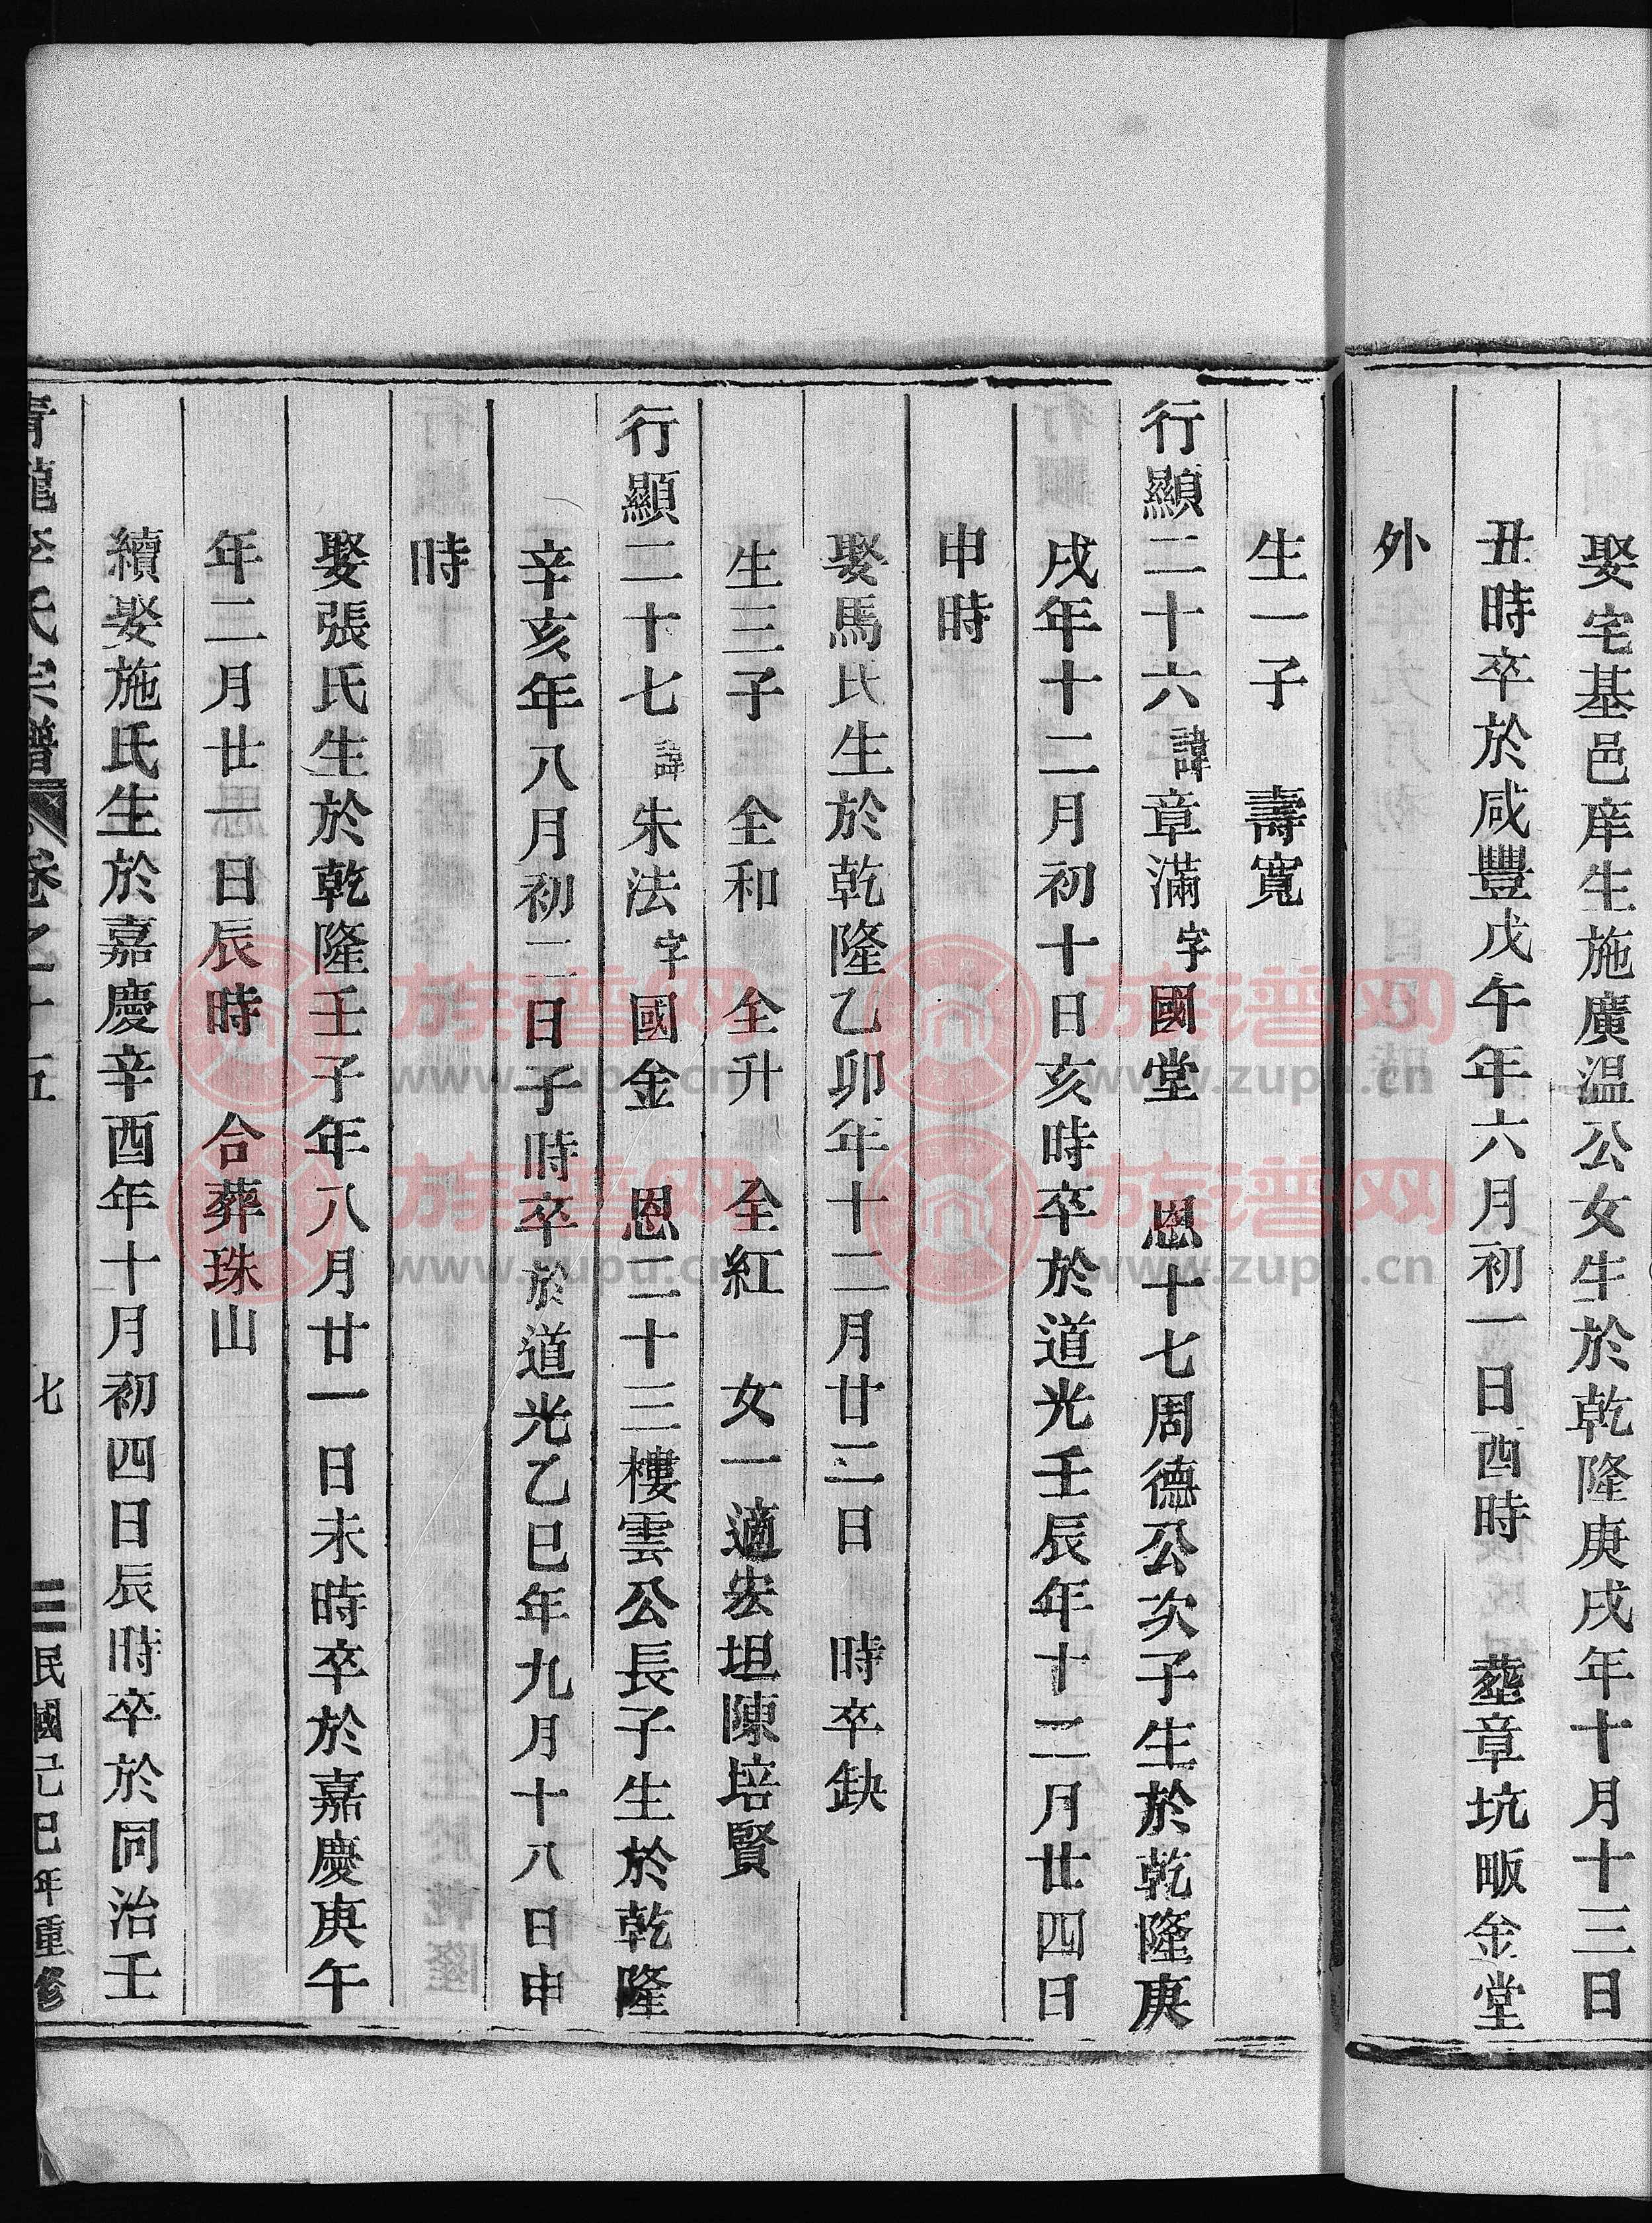 娶宅基邑庠生施廣温公女生於乾隆庚戌年十月十三日
丑時卒於咸豐戊午年六月初一日酉時　塟章坑畈金堂
外
生一子　壽寬
行顯二十六諱章滿字國堂　恩十七周德公次子生於乾隆庚
戌年十二月初十日亥時卒於道光壬辰年十二月廿四日
申時
娶馬氏生於乾隆乙卯年十二月廿二日　時卒缺
生三子　全和　全升　全紅　女一適宏坦陳培賢
行顯二十七諱朱法字國金　恩二十三樓雲公長子生於乾隆
辛亥年八月初二日子時卒於道光乙巳年九月十八日申
時
娶張氏生於乾隆壬子年八月廿一日未時卒於嘉慶庚午
年二月廿一日辰時　合葬珠山
續娶施氏生於嘉慶辛酉年十月初四日辰時卒於同治壬
青龍李氏宗譜　卷之十五　七　民國己巳年重修
族谱网
www.zupu.cn
族谱网
www.zupu.cn
族谱网
www.zupu.cn
族谱网
www.zupu.cn